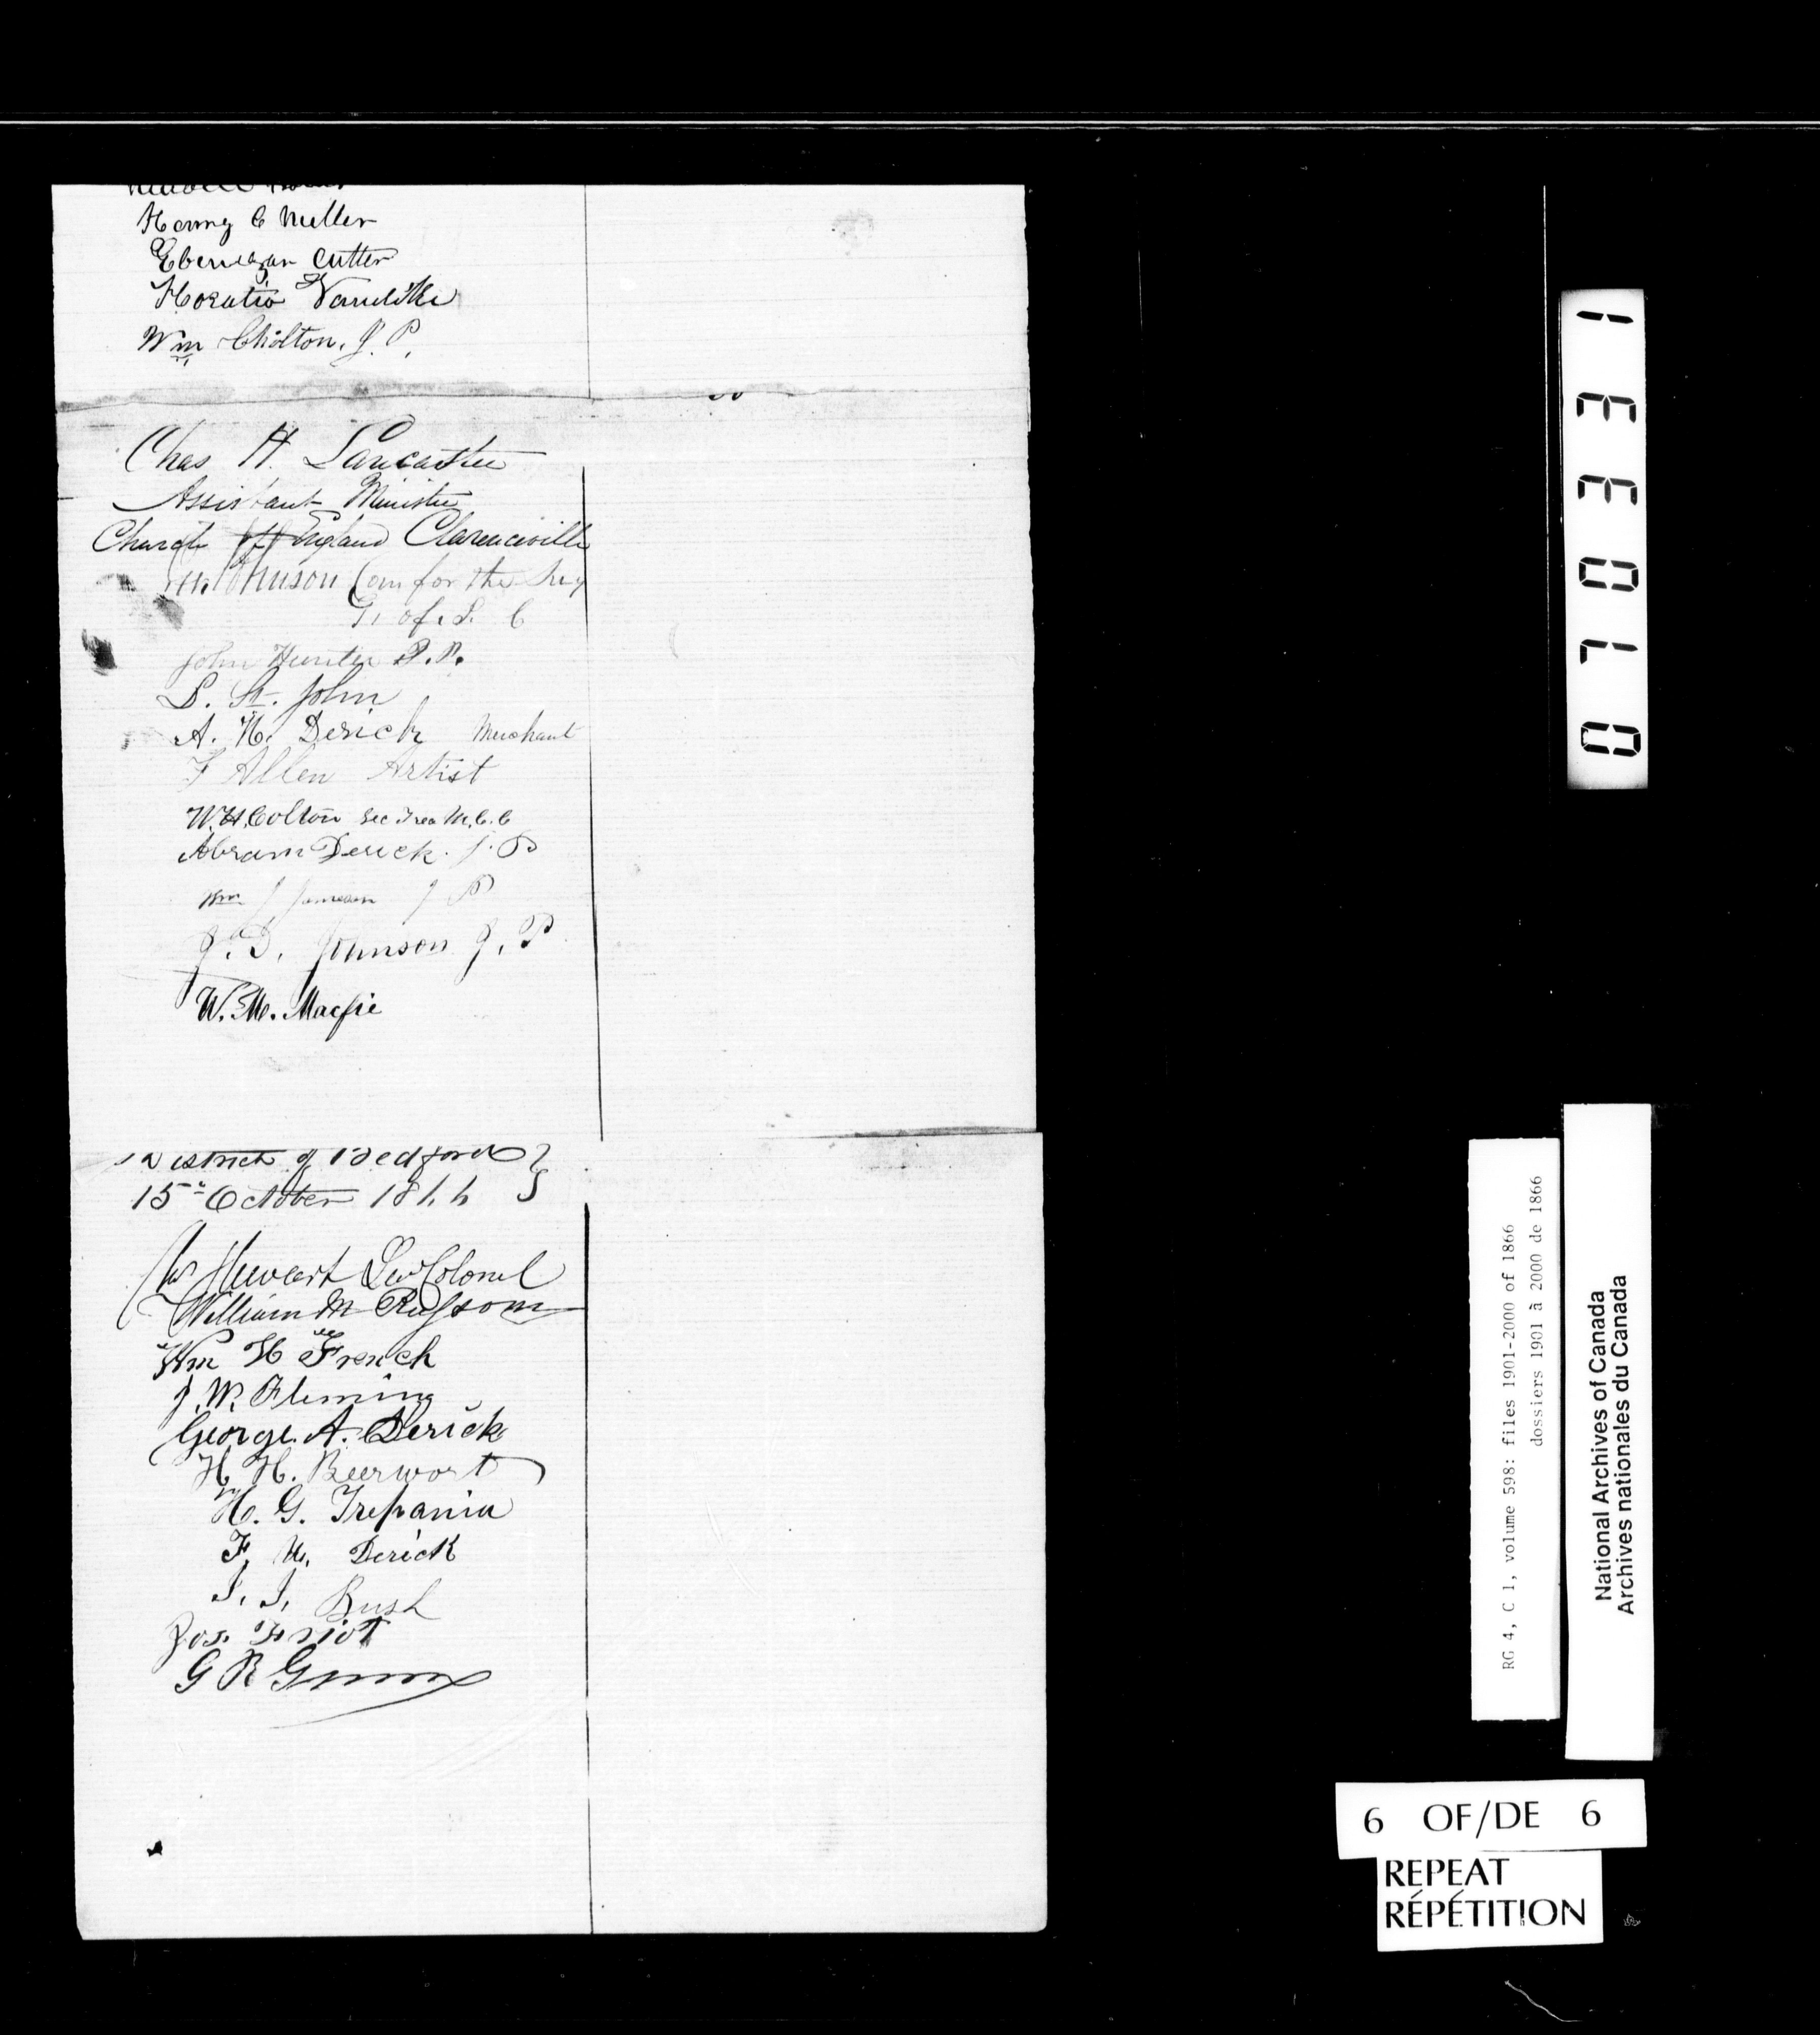 Henry C Miller
Ebenezar Cutter
Horatio Vandike
Wm Chilton, J. P.
Chas H. Lancaster
Assistant Minister
Church of England Clarenceville
Johnson Com for the
G. of. L. C
John Hunter P.P.
D. St. John
A. H. Derick Merchant
F Allen Artist
W. H. Colton Sec Trea M. C. C
Abram Derick. J. P
Wm J Jameson J P
J. D. Johnson J. P
W. M. Macfie
District of Bedford
15th October 1866
Stewart Lieu Colonel
William M
Wm H French
J. W. Fleming
George. A. Derick
H. H. Beerwort
H. G. Trepania
F. H. Derick
J. J. Bush
Jos. Friot
G R
071033331
RG 4, C 1, volume 598: files 1901-2000 of 1866
dossiers 1901 à 2000 de 1866
National Archives of Canada
Archives nationales du Canada
6 OF/DE 6
REPEAT
RÉPÉTITION